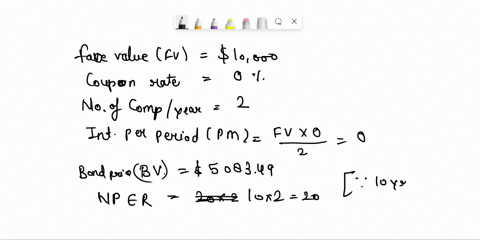 Face value (FV) = $10,000
Coupon rate = 0 %
No. of Comp/year = 2
Int. Per Period (PM) = FV X 0 / 2 = 0
Bond price (BV) = $ 5083.49
NPER = 20x2 10x2 = 20 [∵ 10 yr